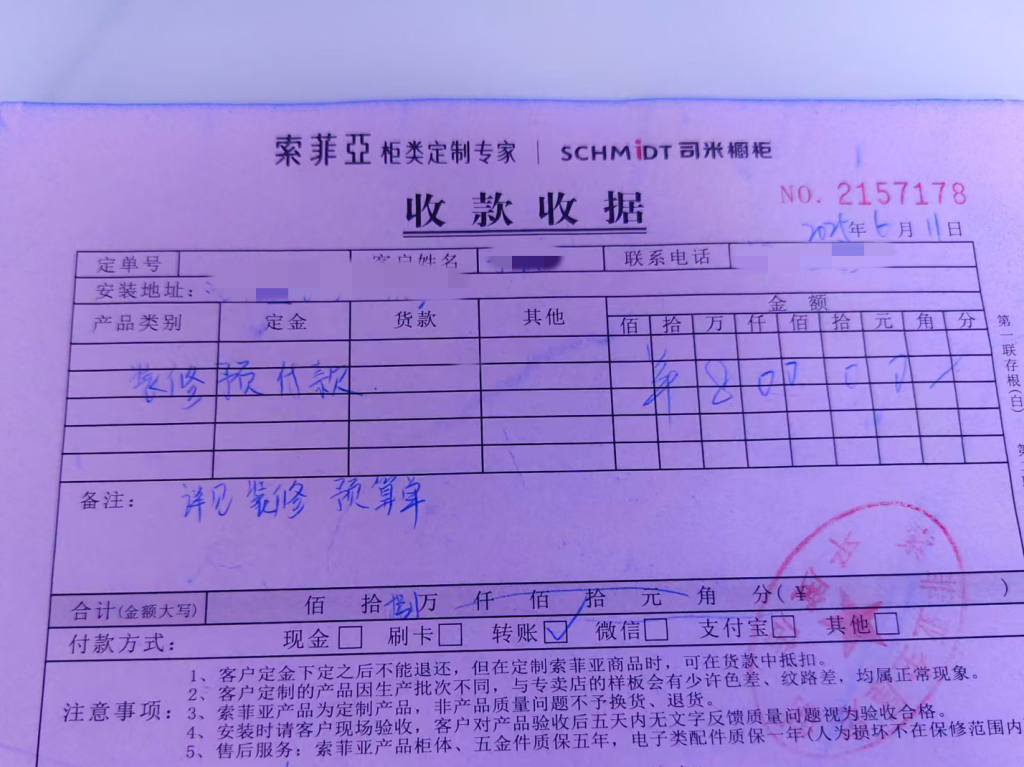 索菲亞 柜类定制专家 | SCHMIDT 司米橱柜
收款收据
NO. 2157178
2025年6月11日
定单号 客户姓名 联系电话
安装地址:
产品类别 定金 货款 其他 金额
佰 拾 万 仟 佰 拾 元 角 分
装修预付款
80000
备注: 详见装修预算单
合计(金额大写) 佰 拾 捌 万 仟 佰 拾 元 角 分(¥ )
付款方式: 现金□ 刷卡□ 转账☑ 微信□ 支付宝□ 其他□
注意事项:
1、客户定金下定之后不能退还，但在定制索菲亚商品时，可在货款中抵扣。
2、客户定制的产品因生产批次不同，与专卖店的样板会有少许色差、纹路差，均属正常现象。
3、索菲亚产品为定制产品，非产品质量问题不予换货、退货。
4、安装时请客户现场验收，客户对产品验收后五天内无文字反馈质量问题视为验收合格。
5、售后服务：索菲亚产品柜体、五金件质保五年，电子类配件质保一年(人为损坏不在保修范围内
第一联存根(白)